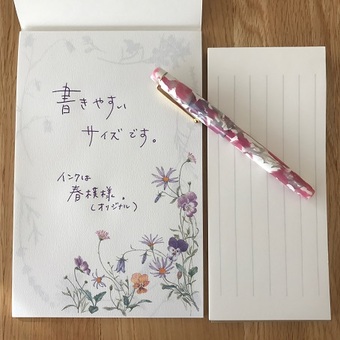 書きやすい
サイズです。
インクは
春模様。
(オリジナル)